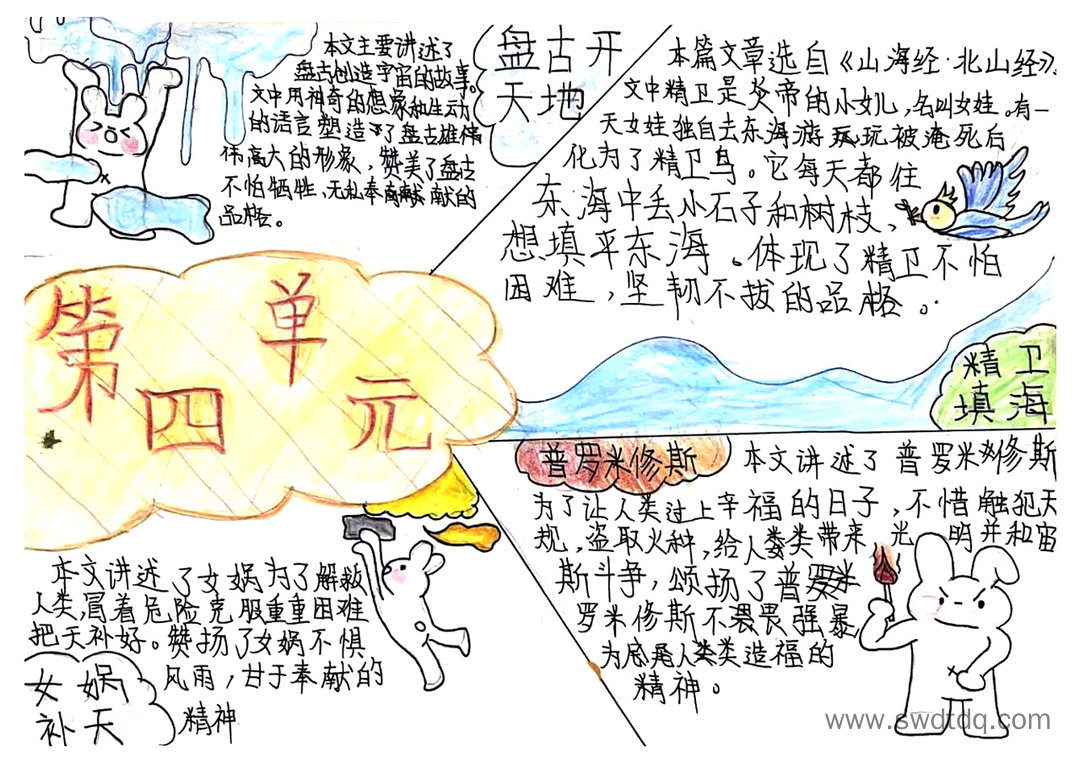 第四单元
盘古开
天地
本文主要讲述了
盘古创造宇宙的故事。
文中用神奇的想象和生动
的语言塑造了盘古雄伟
伟高大的形象，赞美了盘古
不怕牺牲，无私奉献献的
品格。
本篇文章选自《山海经·北山经》。
文中精卫是炎帝的小女儿，名叫女娃。有一
天女娃独自去东海游玩玩被淹死后
化为了精卫鸟。它每天都往
东海中丢小石子和树枝、
想填平东海。体现了精卫不怕
困难，坚韧不拔的品格。
精卫
填海
普罗米修斯
本文讲述了普罗米修斯
为了让人类过上辛福的日子，不惜触犯天
规，盗取火种，给人类类带来光明并和宙
斯斗争，颂扬了普罗米
罗米修斯不畏畏强暴
为人类类造福的
精神。
本文讲述了女娲为了解救
人类，冒着危险克服重重困难
把天补好。赞扬了女娲不惧
风雨，甘于奉献的
精神
女娲
补天
www.swdtdq.com